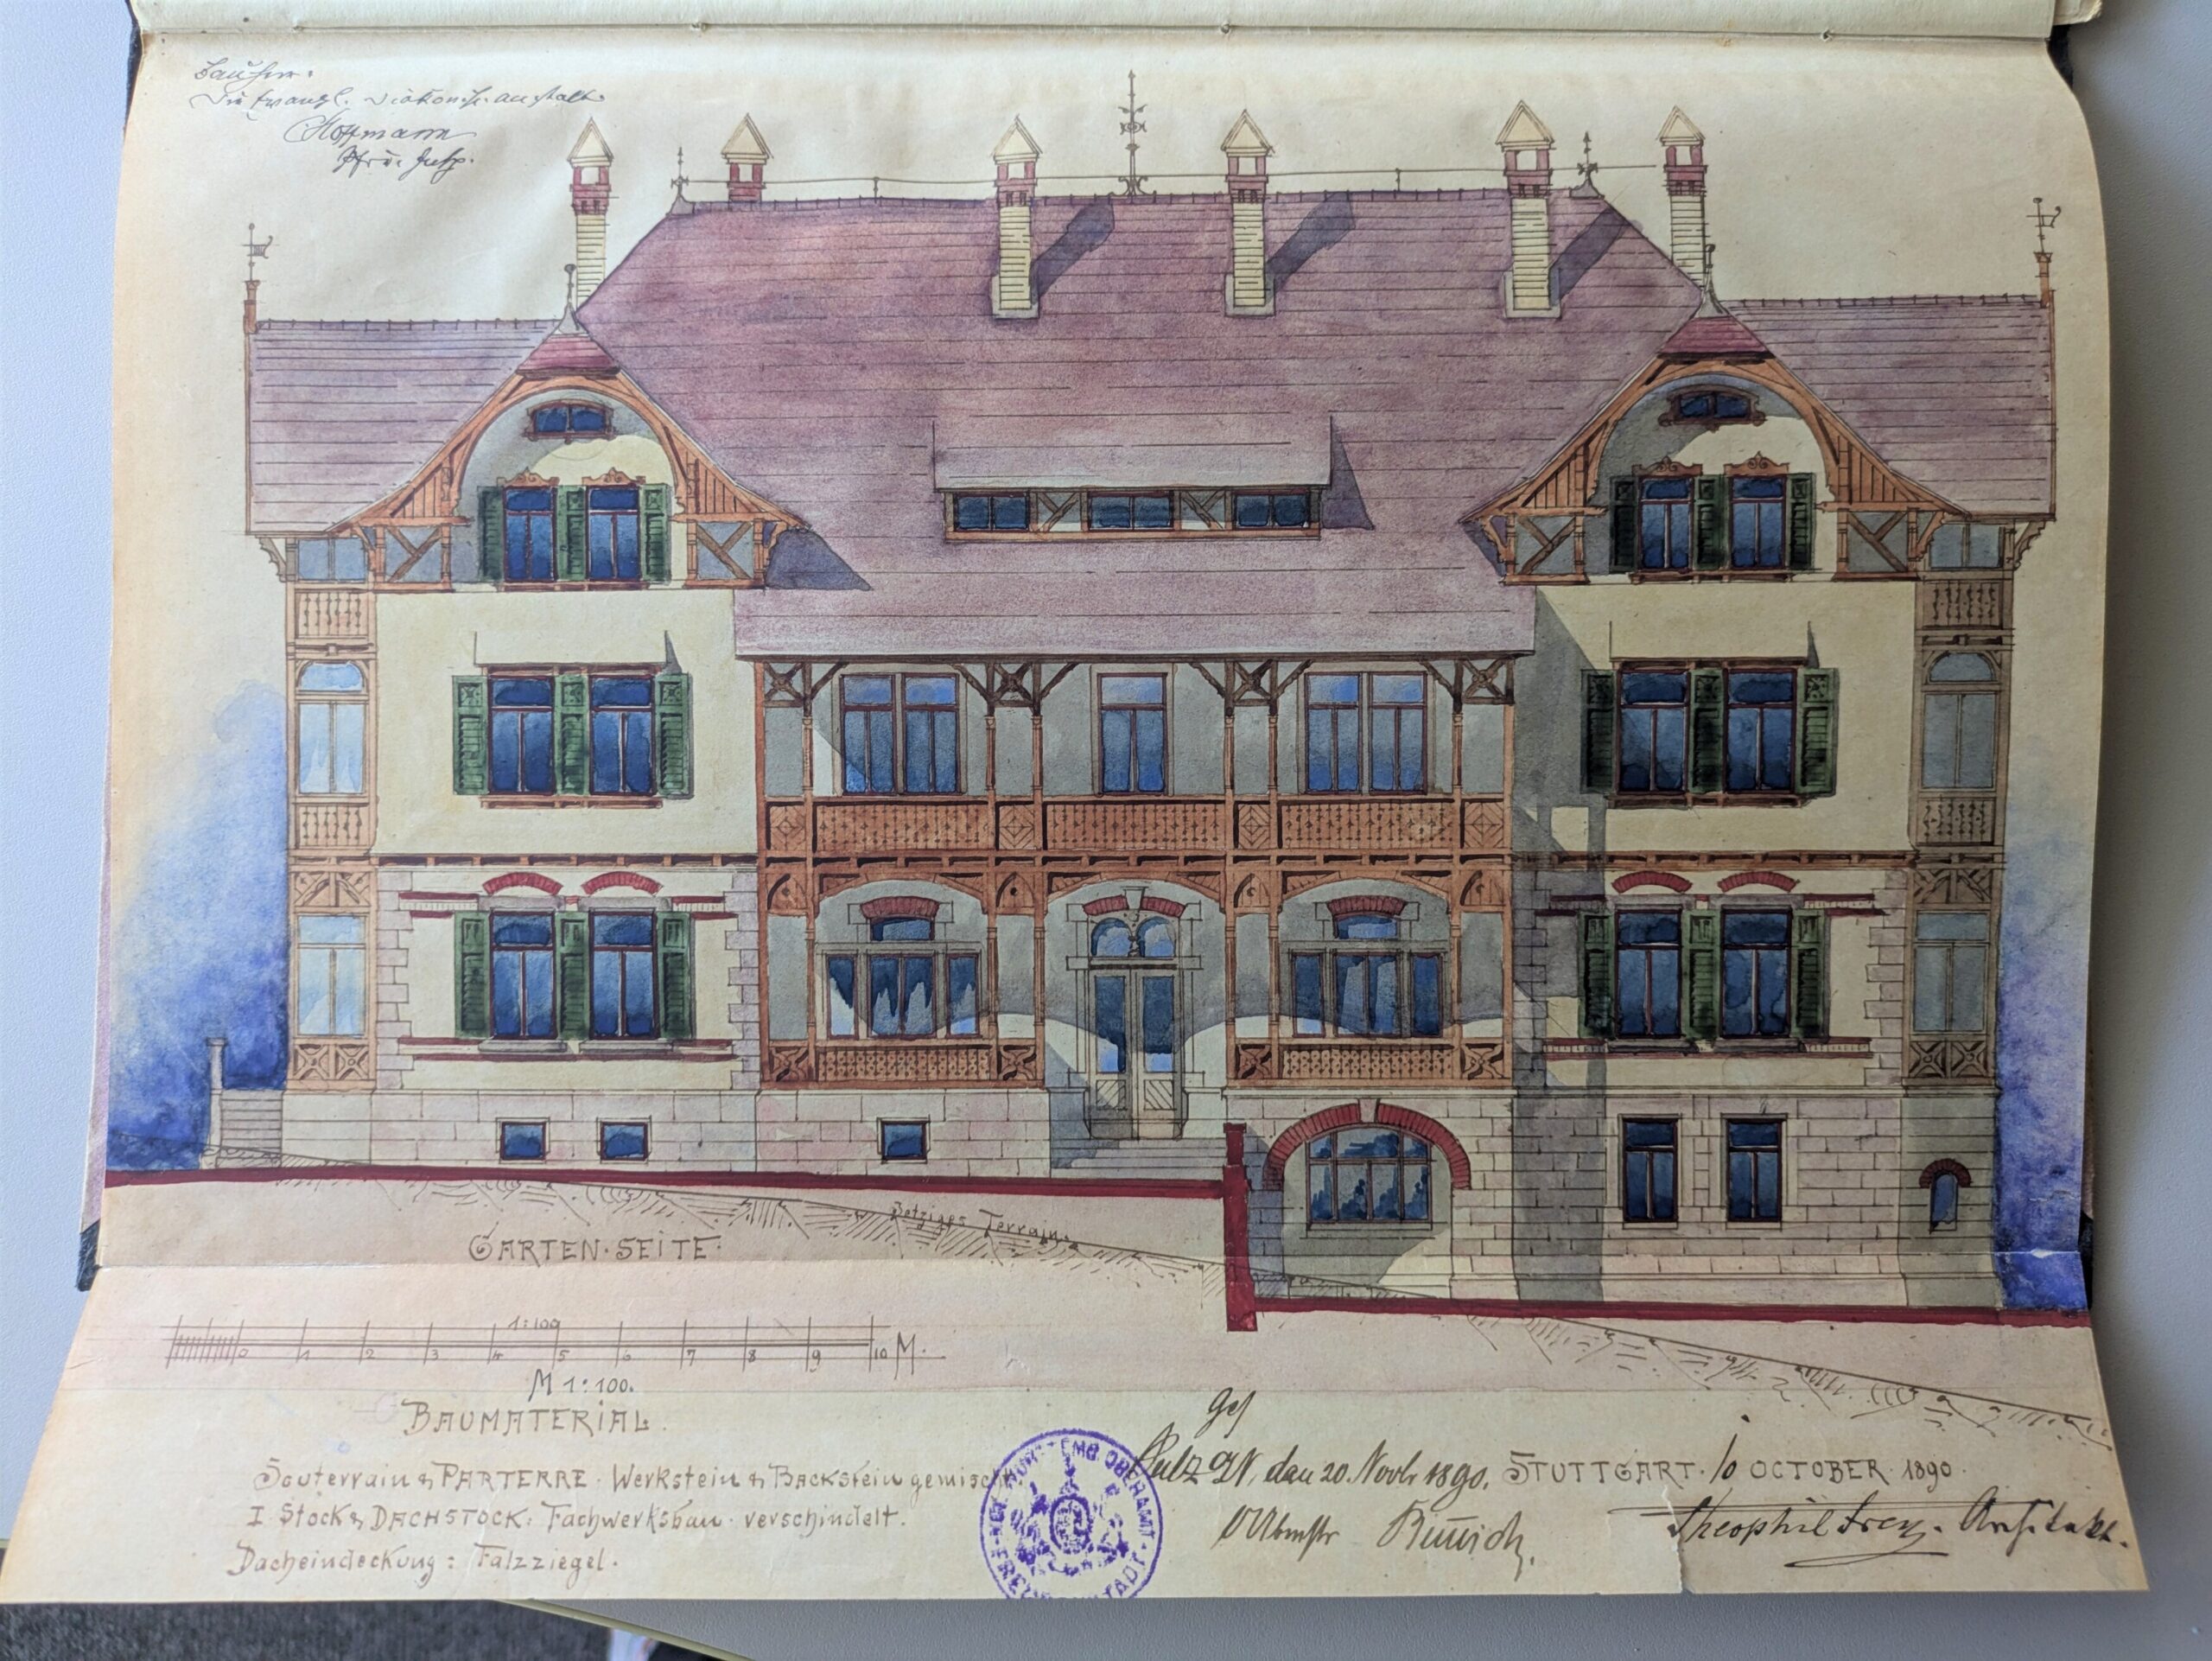 Bauherr:
Die Evangl. Diakoniss. anstalt
Hoffmann
Jetziges Terrain.
GARTEN·SEITE·
1:100
0 1 2 3 4 5 6 7 8 9 10 M.
M 1:100.
BAUMATERIAL.
Souterrain & PARTERRE· Werkstein & Backstein gemischt
I Stock & DACHSTOCK: Fachwerksbau· verschindelt.
Dacheindeckung: Falzziegel.
OBERAMT
Ges
Sulz a/N, den 20. Novbr 1890.
STUTTGART· 10 OCTOBER· 1890·
Theophil Frey. Architekt.